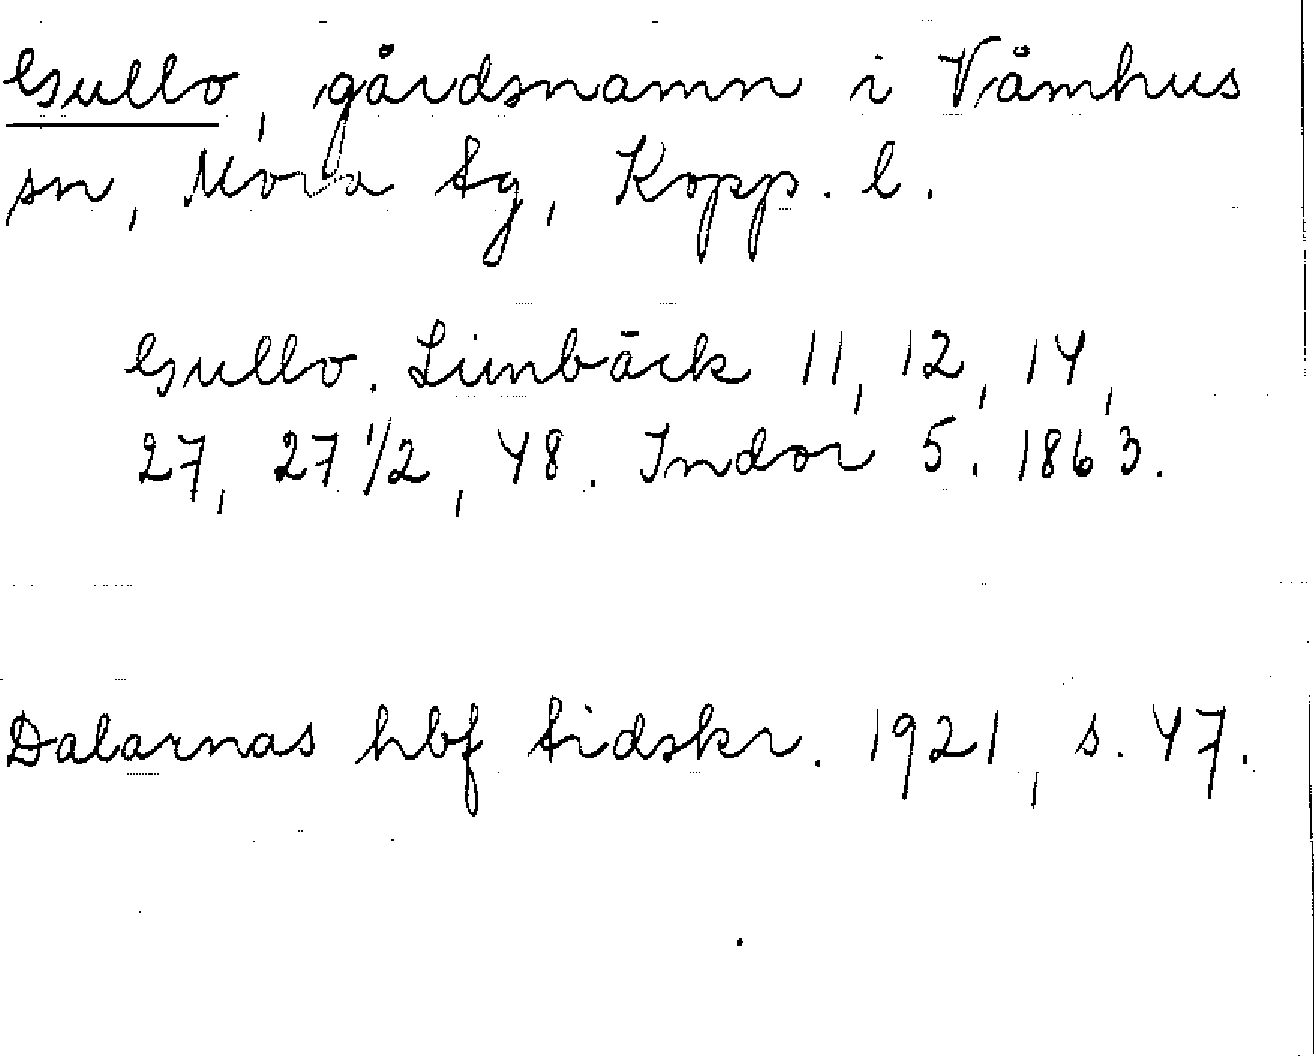 Gullo, gårdsnamn i Våmhus
sn, Mora tg, Kopp. l.
Gullo. Limbäck 11, 12, 14,
27, 27 1/2, 48. Indor 5. 1863.
Dalarnas hbf tidskr. 1921, s. 47.